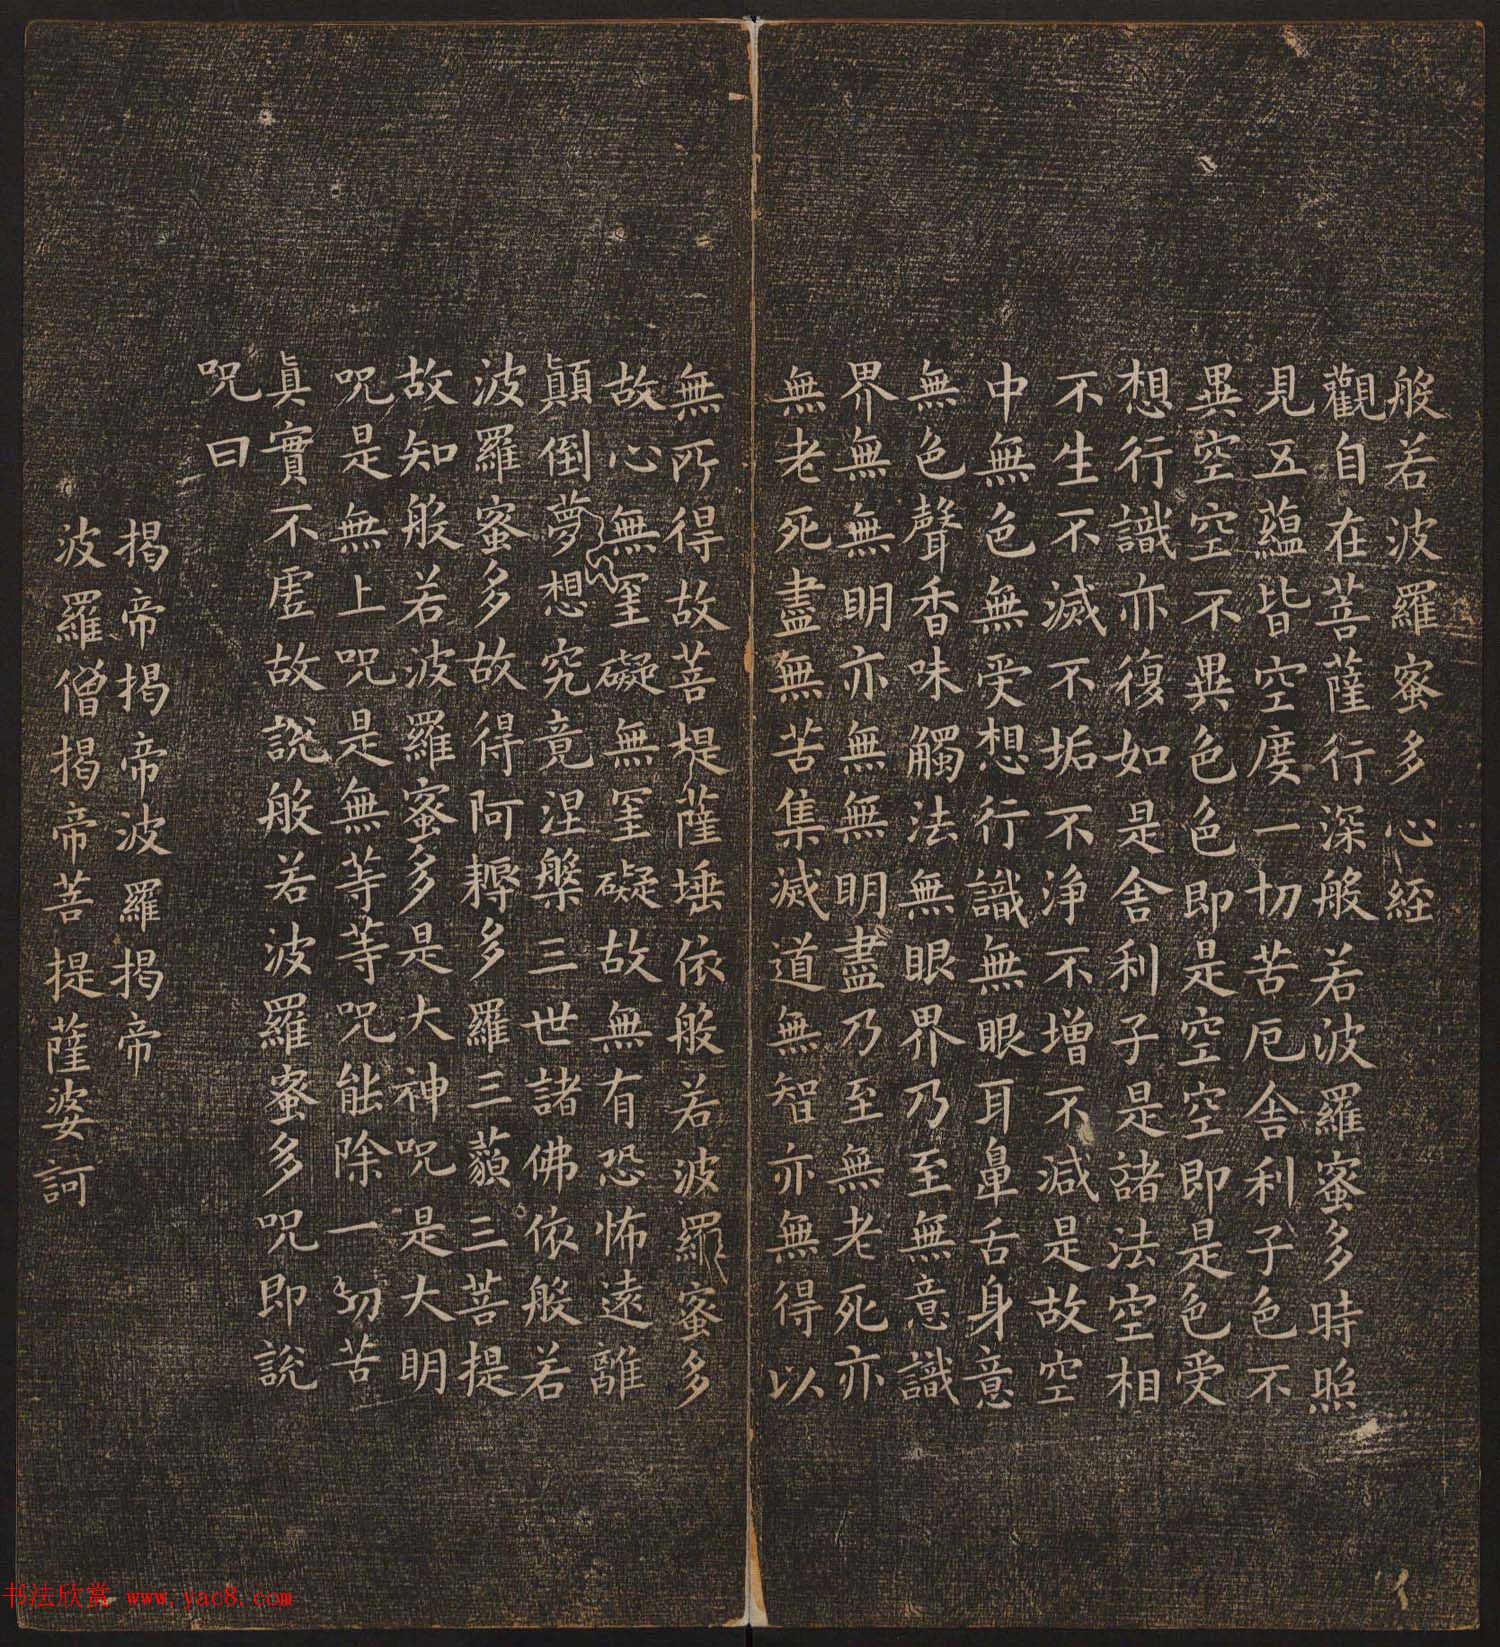 般若波羅蜜多心経
觀自在菩薩行深般若波羅蜜多時照
見五蘊皆空度一切苦厄舎利子色不
異空空不異色色即是空空即是色受
想行識亦復如是舎利子是諸法空相
不生不滅不垢不淨不增不減是故空
中無色無受想行識無眼耳鼻舌身意
無色聲香味觸法無眼界乃至無意識
界無無明亦無無明盡乃至無老死亦
無老死盡無苦集滅道無智亦無得以
無所得故菩提薩埵依般若波羅蜜多
故心無罣礙無罣礙故無有恐怖遠離
顛倒夢想究竟涅槃三世諸佛依般若
波羅蜜多故得阿耨多羅三藐三菩提
故知般若波羅蜜多是大神呪是大明
呪是無上呪是無等等呪能除一切苦
眞實不虛故說般若波羅蜜多呪即說
呪曰
揭帝揭帝波羅揭帝
波羅僧揭帝菩提薩婆訶
书法欣赏 www.yac8.com